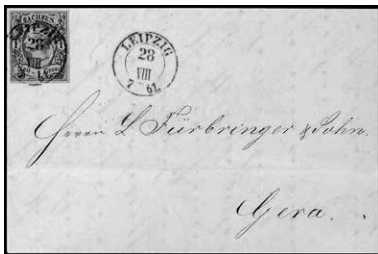 SACHSEN
LEIPZIG
28
VIII
LEIPZIG
28
VIII
7 61
Herrn L Fürbringer & Sohn.
Gera.